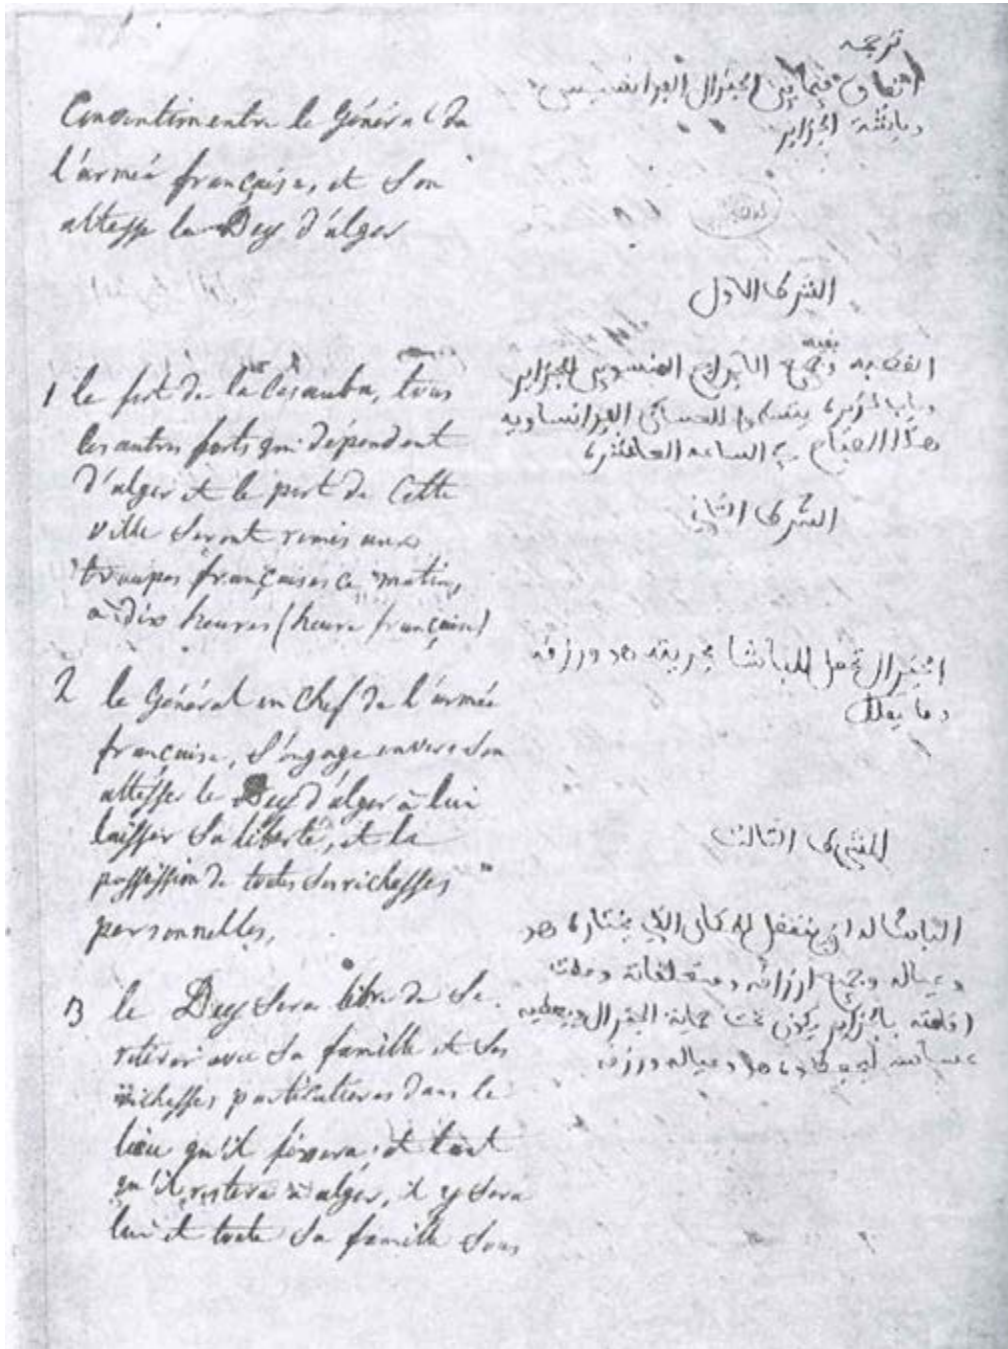 Convention entre le Général de
l'armée française, et Son
altesse le Dey d'alger
1 le fort de la Casauba, tous
les autres forts qui dépendent
d'alger et le port de Cette
ville Seront remis aux
troupes françaises ce matin,
a dix heures (heure française)
2 le Général en Chef de l'armée
française, S'engage envers Son
altesse le Dey d'alger à lui
laisser Sa liberté, et la
possession de toutes Ses richesses
personnelles,
3 le Dey Sera libre de Se
retirer avec Sa famille et Ses
richesses particulieres dans le
lieu qu'il fixera; et tant
qu'il restera à alger, il y Sera
lui et toute Sa famille Sous
ترجمه
اتفاق فيما بين الجنرال الفرانسيس
وباشة الجزاير
الشرط الاول
القصبه وجميع الابراج المنسوبين للجزاير
للعساكر الفرانساويه
هذا الصباح في الساعه العاشره
الشرط الثاني
الجنرال للباشا هو ورزقه
وما يملك
الشرط الثالث
الباشا له ان ينتقل الذي يختاره هو
وعياله وجميع ارزاقه ومتعلقاته
اقامته بالجزاير يكون تحت حماية الجنرال
هو وعياله ورزقه